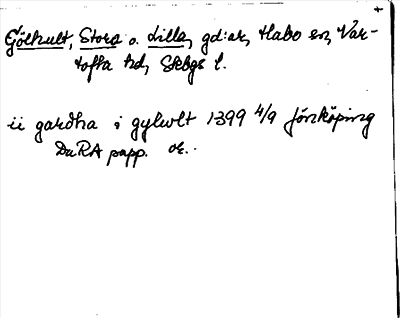 Gölhult, Stora o. Lilla, gd:ar, Habo sn, Var-
tofta hd, Skbgs l.
ii gardha i gylwlt 1399 4/9 Jönköping
DaRA papp. or.